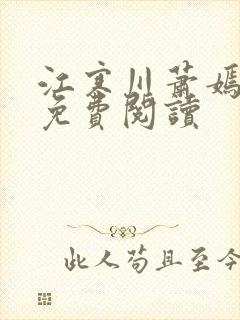 江寒川蕭
免費閱讀
此人苟且至今